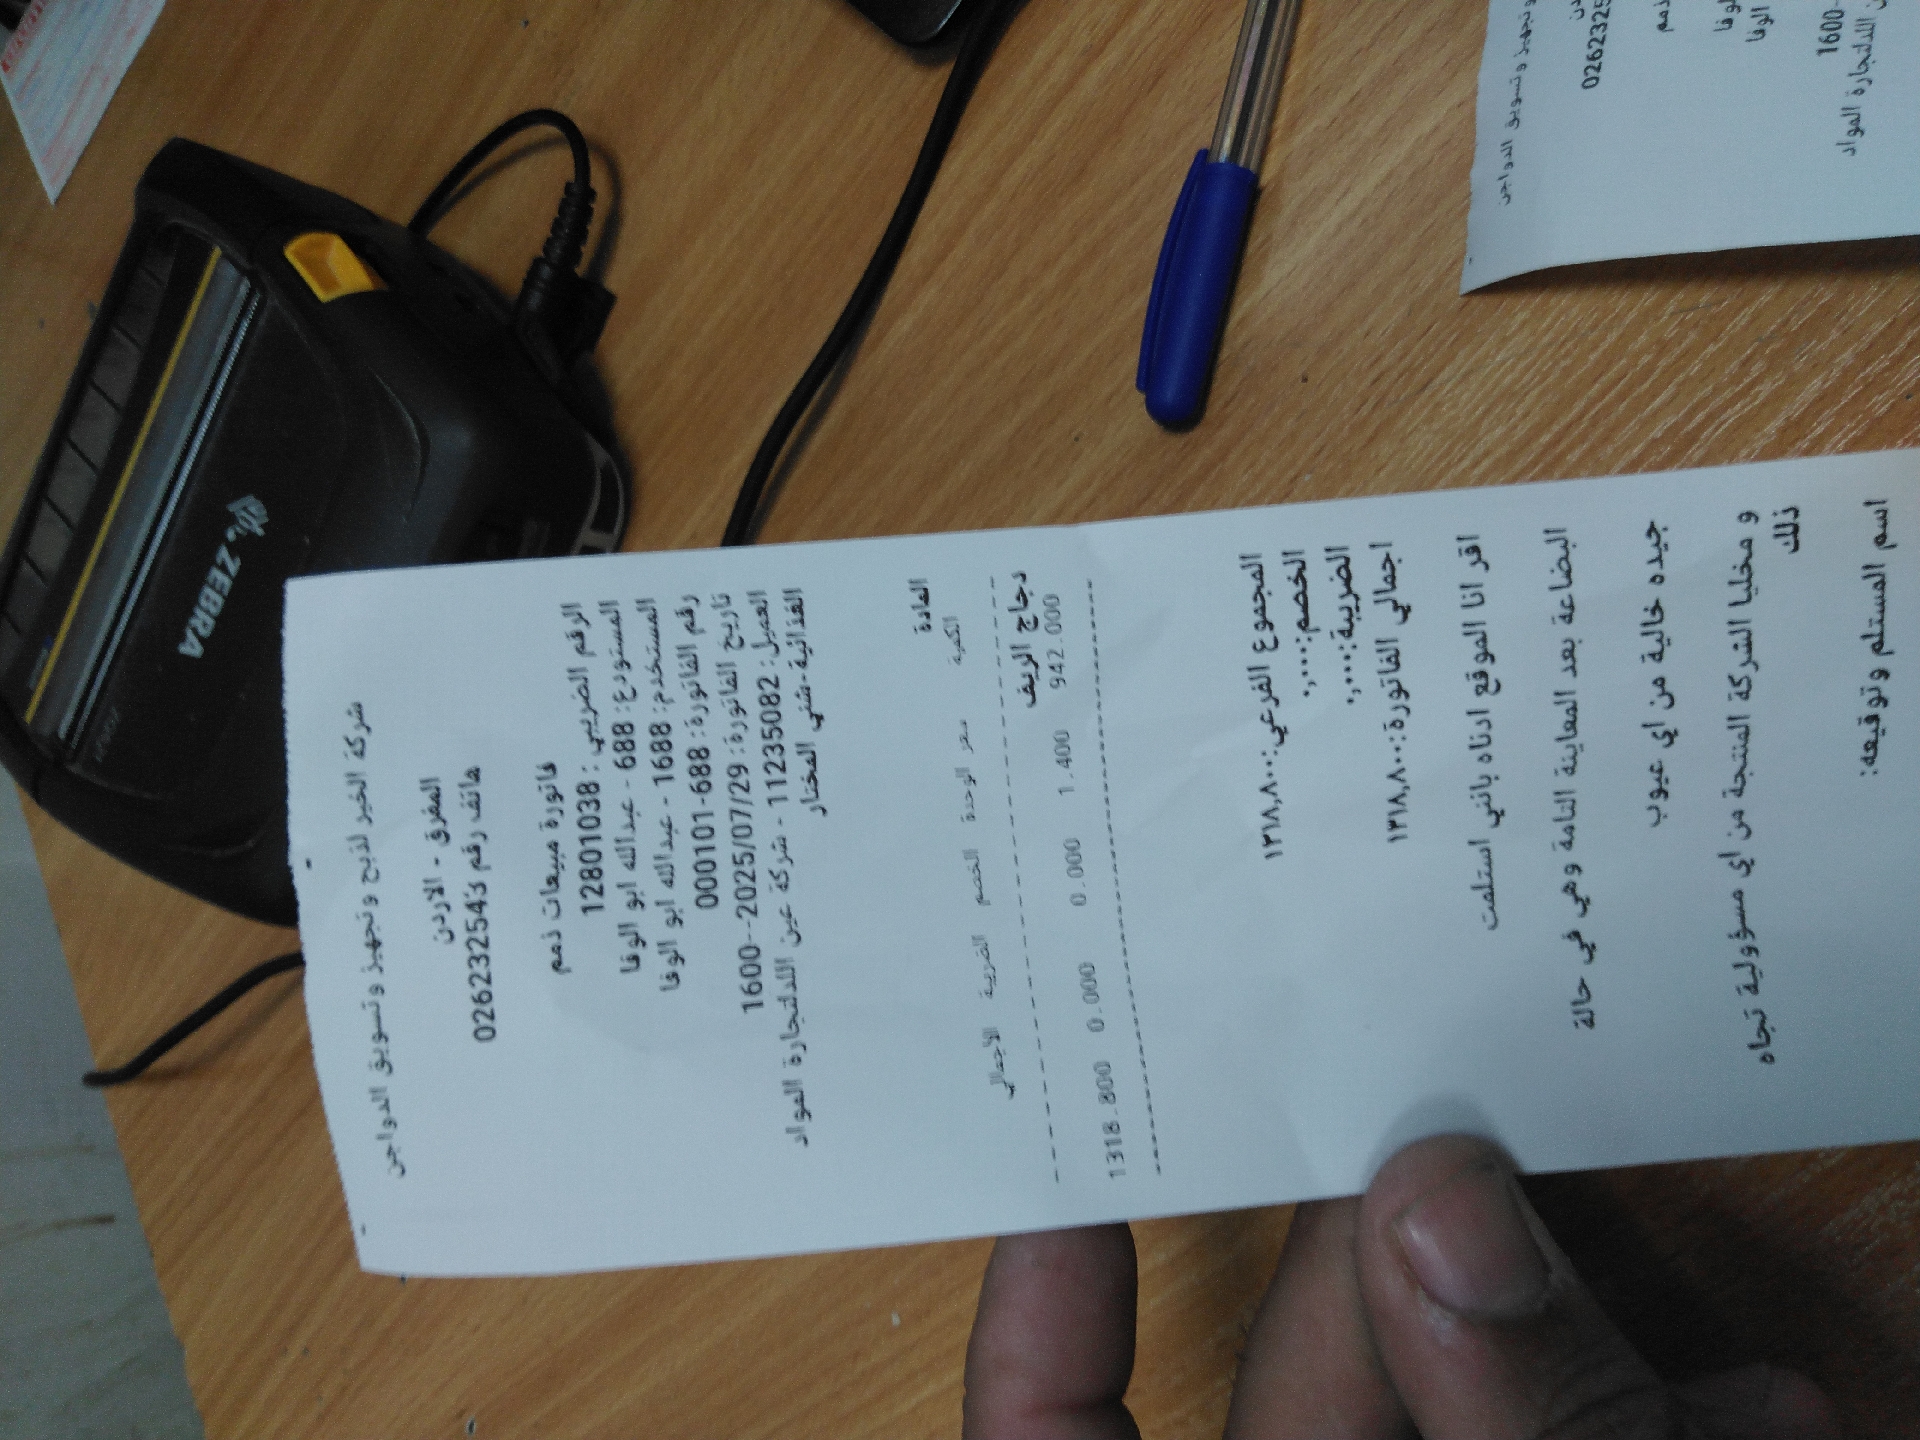 شركة الخير لذبح وتجهيز وتسويق الدواجن
المفرق - الاردن
هاتف رقم 026232543
فاتورة مبيعات ذمم
الرقم الضريبي : 12801038
المستودع: 688 - عبدالله ابو الوفا
المستخدم: 1688 - عبدالله ابو الوفا
رقم الفاتورة: 688-000101
تاريخ الفاتورة: 2025/07/29--1600
العميل: 11235082 - شركة عين اللدلتجارة المواد
الغذائية-شني المختار
المادة
الكمية سعر الوحدة الخصم الضريبة الاجمالي
دجاج الريف
942.000 1.400 0.000 0.000 1318.800
المجموع الفرعي:١٣١٨,٨٠٠
الخصم:٠,٠٠٠
الضريبة:٠,٠٠٠
اجمالي الفاتورة:١٣١٨,٨٠٠
اقر انا الموقع ادناه بانني استلمت
البضاعة بعد المعاينة التامة وهي في حالة
جيده خالية من اي عيوب
و مخليا الشركة المنتجة من اي مسؤولية تجاه
ذلك
اسم المستلم وتوقيعه:
ZEBRA
وتجهيز وتسويق الدواجن
1600-
اللدلتجارة المواد